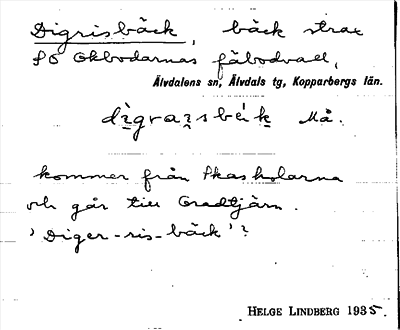 Digrisbäck, bäck strax
SO Okbodarnas fäbodvall,
Älvdalens sn, Älvdals tg, Kopparbergs län.
Må.
kommer från Skasholarna
och går till Gradtjärn.
'Diger-ris-bäck'?
HELGE LINDBERG 1935.